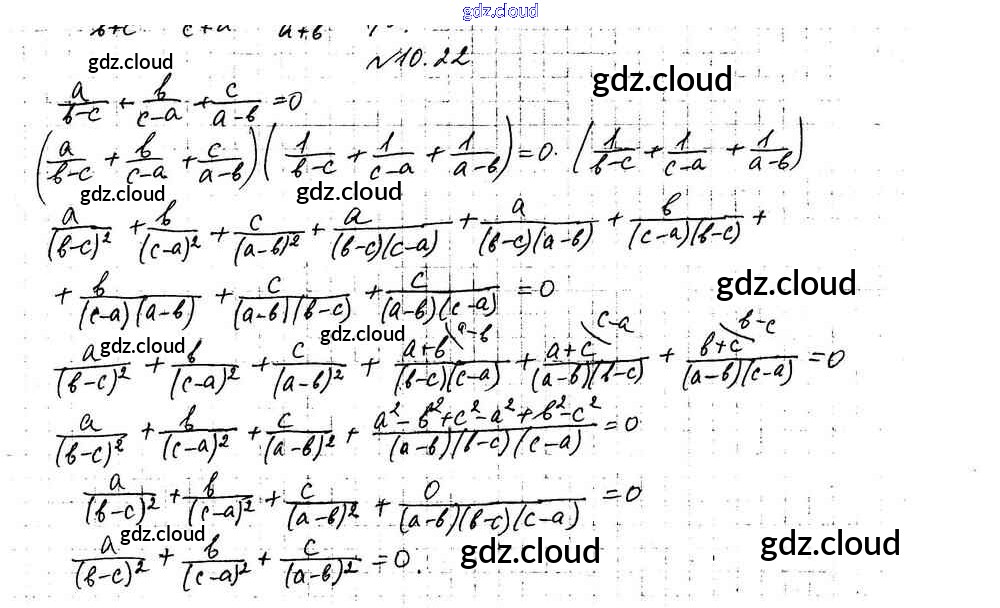 gdz.cloud
b+c c+a a+b
№10.22
gdz.cloud
gdz.cloud
a/(b-c) + b/(c-a) + c/(a-b) = 0
(a/(b-c) + b/(c-a) + c/(a-b)) (1/(b-c) + 1/(c-a) + 1/(a-b)) = 0 · (1/(b-c) + 1/(c-a) + 1/(a-b))
gdz.cloud
gdz.cloud
a/(b-c)² + b/(c-a)² + c/(a-b)² + a/(b-c)(c-a) + a/(b-c)(a-b) + b/(c-a)(b-c) +
+ b/(c-a)(a-b) + c/(a-b)(b-c) + c/(a-b)(c-a) = 0
gdz.cloud
gdz.cloud
gdz.cloud
a/(b-c)² + b/(c-a)² + c/(a-b)² + a+b\a-b/(b-c)(c-a) + a+c\c-a/(a-b)(b-c) + b+c\b-c/(a-b)(c-a) = 0
a/(b-c)² + b/(c-a)² + c/(a-b)² + a²-b²+c²-a²+b²-c²/(a-b)(b-c)(c-a) = 0
a/(b-c)² + b/(c-a)² + c/(a-b)² + 0/(a-b)(b-c)(c-a) = 0
gdz.cloud
gdz.cloud
gdz.cloud
a/(b-c)² + b/(c-a)² + c/(a-b)² = 0.